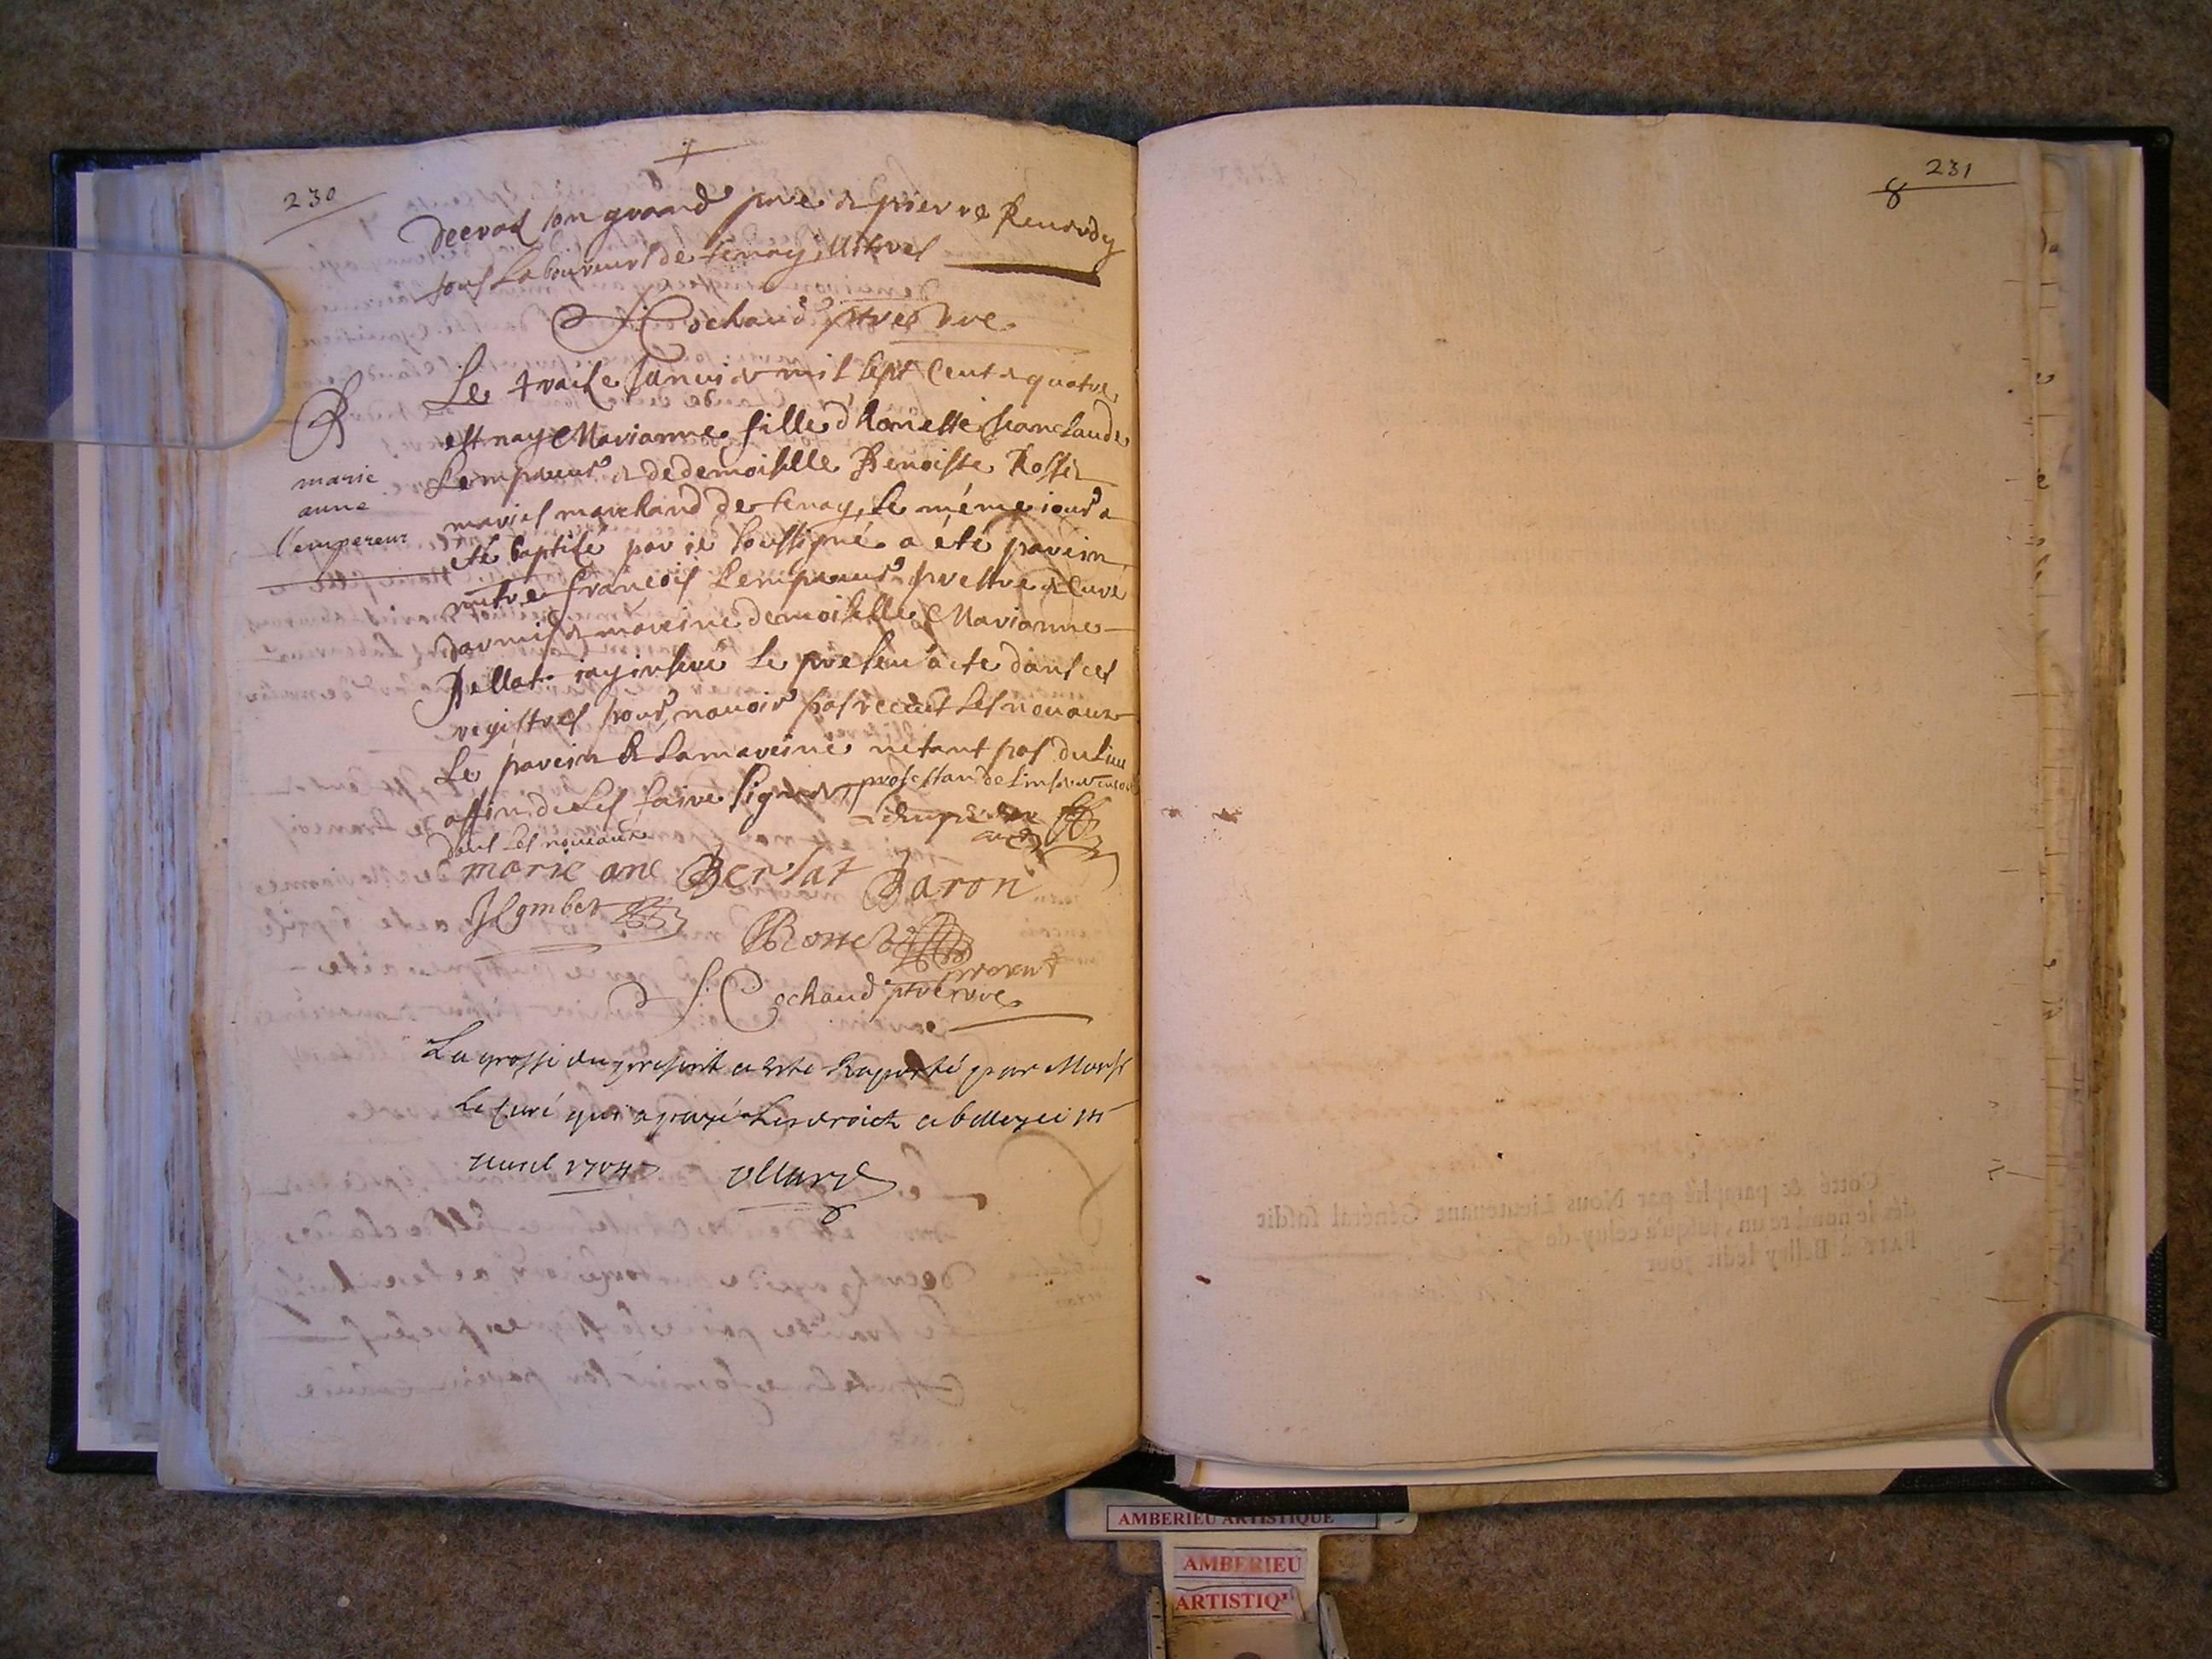 230
decrod son grand pere & pierre Reverdy
tous laboureurs de tenay illitrés
J Cochaud ptre vre
B
marie
anne
l'empereur
Le traise Janvier mil sept cent & quatre
est nay Marianne fille d'honette Jean claude
Lempereur & de demoiselle Benoiste Rosset
mariés marchand de tenay, le méme iour a
eté baptisé par ie soussigné a été parein
mitre françois Lempereur prestre & curé
darmis & mareine demoiselle Marianne
Bellat. iay inseré le present acte dans ces
registres pour n'auoir pas receut les nouaux
Le parein & la mareine n'etant pas du lieu
affin de les faire signer, protestan de linserer encor
dans les nouaux
marie ane Berlat Baron
J Combet
Rosset
present
J. Cochaud ptre vre
La grosse du present a esté Raporté par Monsr
Le Curé qui a payé Les droict a belley ce 14
Avril 1704 Ollard
231
8
Cotté & paraphé par Nous Lieutenant Général susdit
dés le nombre un, jusqu'à celuy de
FAIT à Belley ledit jour
AMBERIEU ARTISTIQUE
AMBERIEU
ARTISTIQU